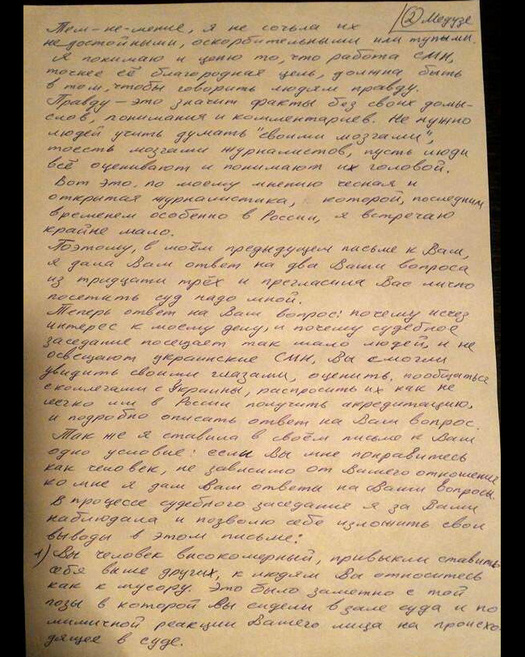 (2) Медузе
Тем-не-менее, я не сочла их
недостойными, оскорбительными или тупыми.
Я понимаю и ценю то, что работа СМИ,
точнее её благородная цель, должна быть
в том, чтобы говорить людям правду.
Правду – это значит факты без своих домы-
слов, понимания и комментариев. Не нужно
людей учить думать "своими мозгами",
тоесть мозгами журналистов, пусть люди
всё оценивают и понимают их головой.
Вот это, по моему мнению честная и
открытая журналистика, которой, последним
временем особенно в России, я встречаю
крайне мало.
Поэтому, в моём предыдущем письме к Вам,
я дала Вам ответ на два Ваши вопроса
из тридцати трёх и пригласила Вас лично
посетить суд надо мной.
Теперь ответ на Вам вопрос: почему исчез
интерес к моему делу, и почему судебное
заседание посещает так мало людей, и не
освещают украинские СМИ, Вы смогли
увидить своими глазами, оценить, пообщаться
с коллегами с Украины, распросить их как не
легко им в России получить акредитацию,
и подробно описать ответ на Вам вопрос.
Так же я ставила в своём письме к Вам
одно условие: если Вы мне понравитесь
как человек, не зависимо от Вашего отношения
ко мне я дам Вам ответы на Ваши вопросы.
В процессе судебного заседания я за Вами
наблюдала и позволю себе изложить свои
выводы в этом письме:
1) Вы человек високомерный, привыкли ставить
себя выше других, к людям Вы относитесь
как к мусору. Это было заметно с той
позы в которой Вы сидели в зале суда и по
мимичной реакции Вашего лица на происхо-
дящее в суде.